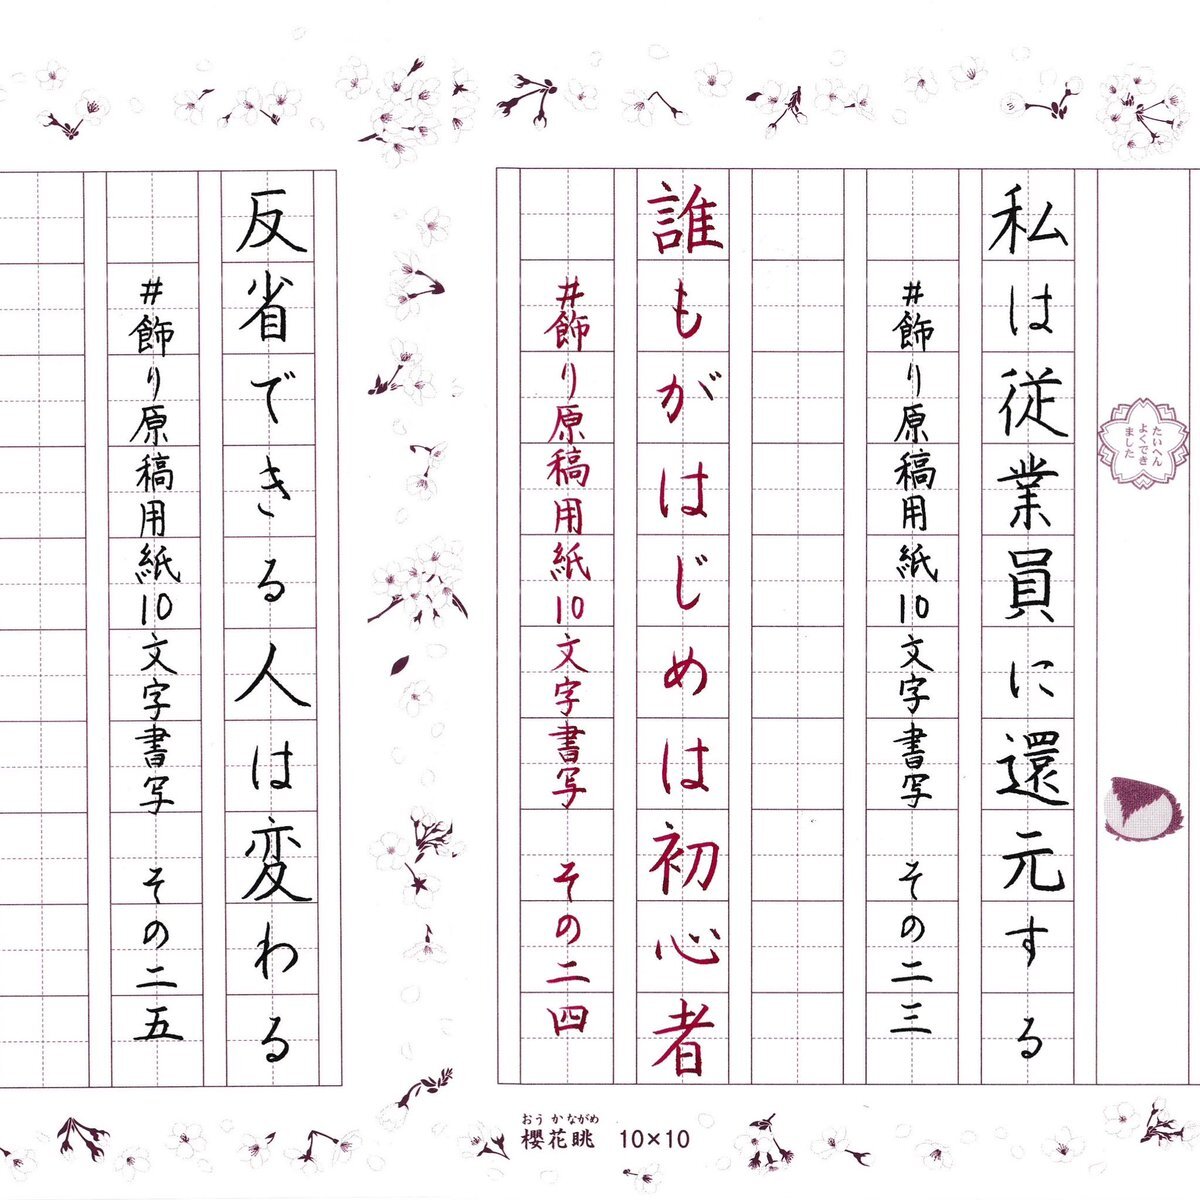 たいへん
よくでき
ました
私は従業員に還元する
#飾り原稿用紙10文字書写 その二三
誰もがはじめは初心者
#飾り原稿用紙10文字書写 その二四
反省できる人は変わる
#飾り原稿用紙10文字書写 その二五
おうかながめ
櫻花眺 10×10